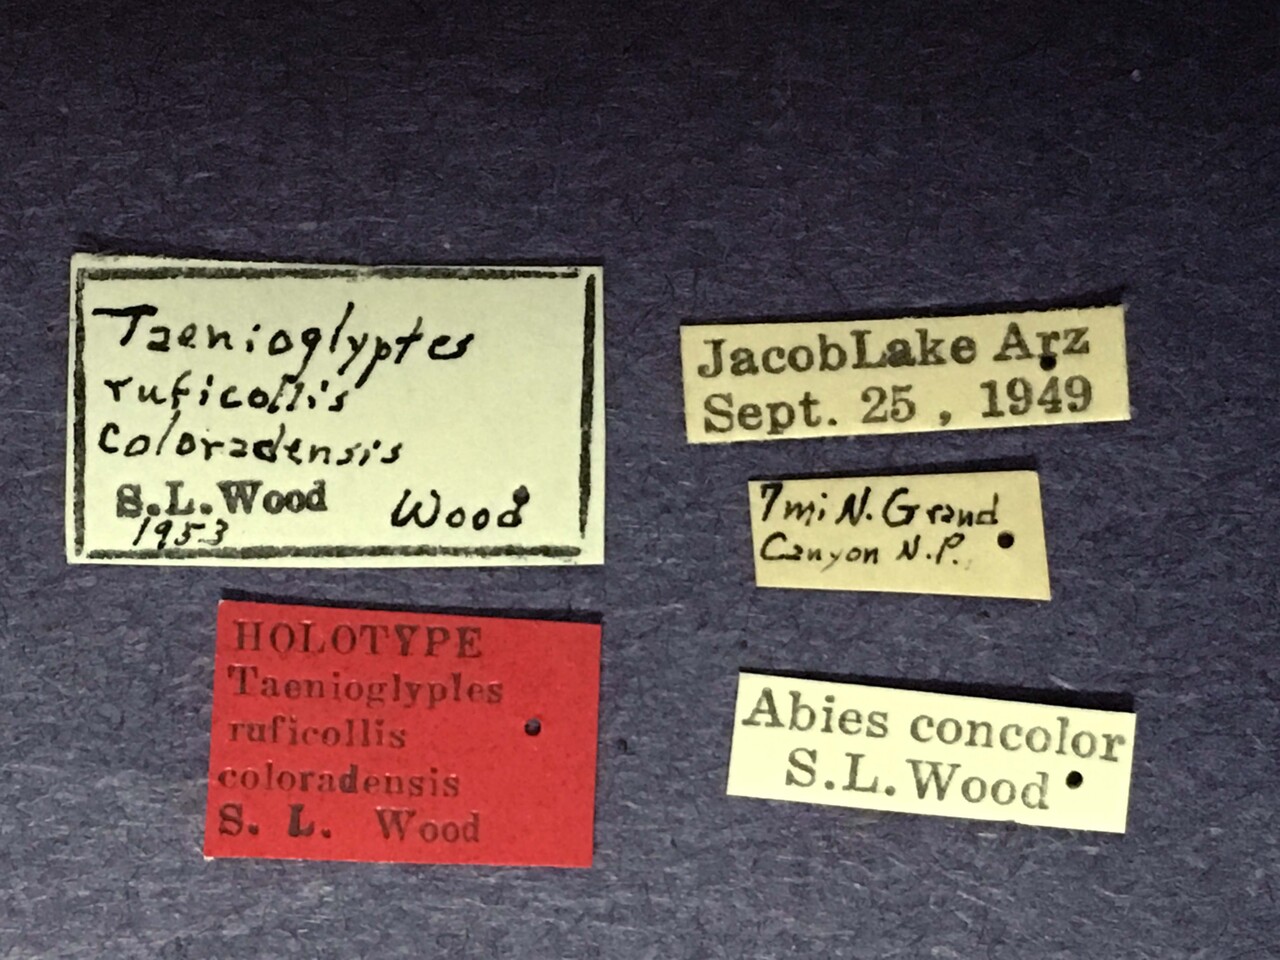 Taenioglyptes
ruficollis
coloradensis
S.L.Wood Wood
1953
HOLOTYPE
Taenioglyptes
ruficollis
coloradensis
S. L. Wood
JacobLake Arz
Sept. 25 , 1949
7mi N. Grand
Canyon N.P.
Abies concolor
S.L.Wood